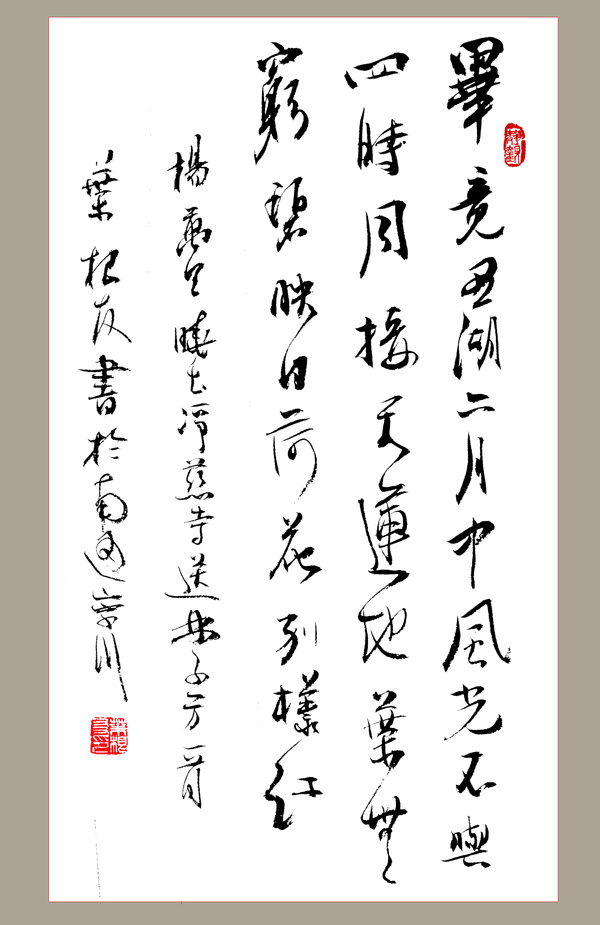 畢竟西湖六月中風光不與
四時同接天蓮地葉無
窮碧映日荷花別樣紅
楊萬里曉出淨慈寺送林子方一首
葉根友書於南通崇川